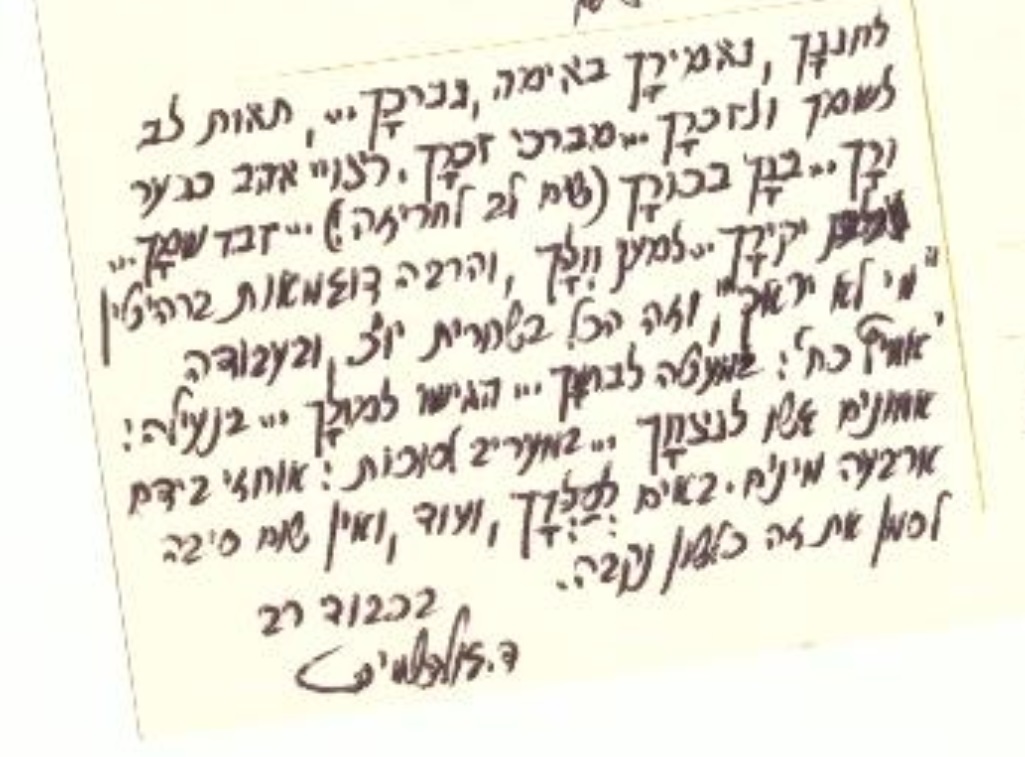 לחננך, נאמירָך באימה, נברכָך..., תאות לב
לשמך ולזכרָך...מברכי זכרָך. רצויי אהב כבער
ורָך... בנָך בכורָך (שים לב לחריזה!)... זבד שמָך...
יקירָך...למען חילָך, והרבה דוגמאות ברהיטין
"מי לא יראך", וזה הכל בשחרית יו"כ, ובעבודה
"אמיץ כח": במעטה לבושך... הגישו למולָך... בנעילה:
אמונים אשו לנצחָך ... במעריב לסוכות: אוחזי בידם
ארבעה מינים. באים להללָך, ועוד, ואין שום סיבה
לסמן את זה כלשון נקבה.
בכבוד רב
ד. גולדשמידט